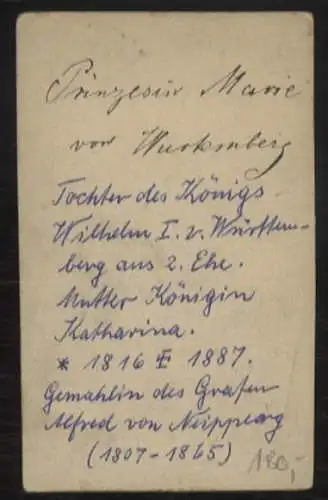 Prinzesin Marie
von Wurtemberg
Tochter des Königs
Wilhelm I. v. Württem-
berg aus 2. Ehe.
Mutter Königin
Katharina.
* 1816 ✝ 1887.
Gemahlin des Grafen
Alfred von Neipperg
(1807-1865)
180,-